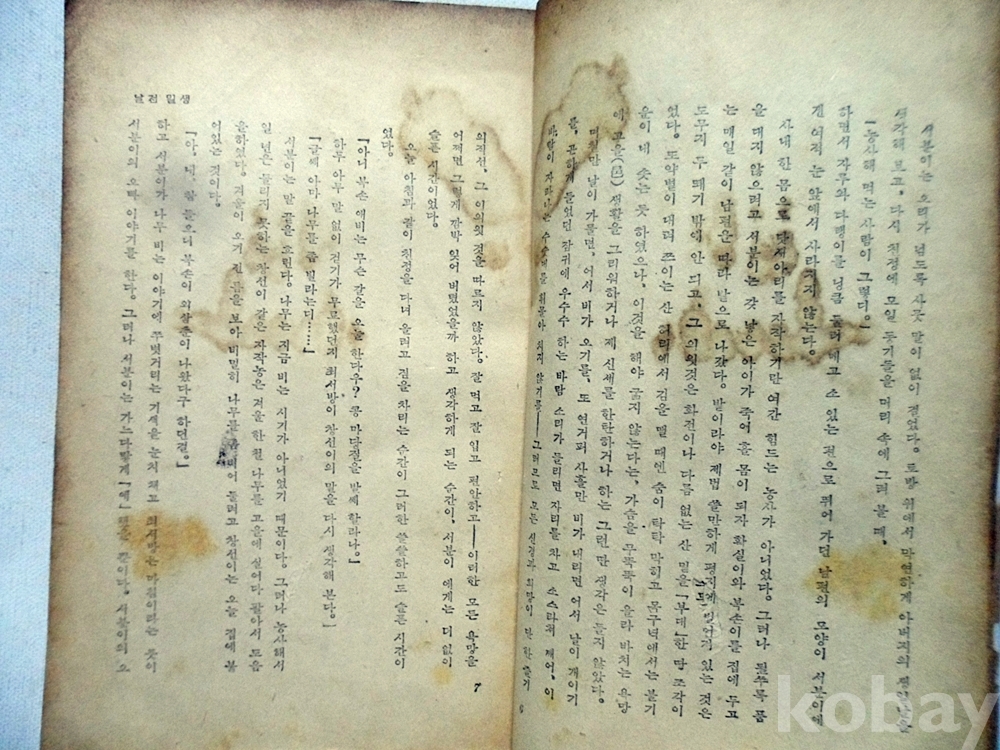 서분이는 오리가 넘도록 사뭇 말이 없이 걸었다. 위에서 막연하게 아버지의
생각해 보고, 다시 친정에 모일 동기들을 머리 속에 그려 볼 때,
「농사해 먹는 사람이 그렇디.」
하면서 자루와 다랭이를 넝큼 둘러메고 소 있는 편으로 뛰어 가던 남편의 모양이 서분이에
겐 여직 눈 앞에서 사라지지 않는다.
사내 한 몸으로 자작하기만 여간 힘드는 농사가 아니었다. 그러나 될쑤록 품
을 대지 않으려고 서분이는 갓 낳은 아이가 죽어 홀 몸이 되자 확실이와 복손이를 집에 두고
는 매일 같이 남편을 따라 밭으로 나갔다. 밭이라야 제법 쓸만하게 있는 것은
도무지 두 뙈기 밖에 안 되고, 그 의의것은 화전이나 다름 없는 산 밑을 「부대」한 땅 조각이
었다. 또약별이 대려 쪼이는 산 허리에서 김을 맬 때엔 숨이 탁탁 막히고 목구녁에서는 불기
운이 네 솟는 듯 하였으나, 이것을 해야 굶지 않는다는, 가슴을 무뚝뚝이 올라 바치는 욕망
에 고을(邑) 생활을 그리워하거나 제 신세를 한탄하거나 하는 그런 만 생각은 들지 않았다.
며칠만 날이 가물면, 어서 비가 오기를, 또 연거퍼 사흘만 비가 내리면 어서 날이 개이기
를, 곤하게 들었던 잠귀에 우수수 하는 바람 소리가 들리면 자리를 차고 소스라쳐 깨어, 이
바람이 자라나는 수숫대를 휘몰아 치지 않기를――그러고도 모든 한 줄기
6
의직선, 그 이의 것을 따르지 않았다. 잘 먹고 잘 입고 편안하고――이러한 모든 욕망을
어쩌면 그렇게 깜박 잊어 버렸을까 하고 생각하게 되는 순간이, 서분이 에게는 더 없이
슬픈 시간이었다.
오늘 아침과 같이 친정을 다녀 올려고 길을 차리는 순간이 그러한 쓸쓸하고도 슬픈 시간이
었다.
「아니 복손 애비는 무슨 갈을 오늘 한다우? 콩 마당질을 발쎄 할라나.」
하두 아무 말 없이 걷기가 무료했던지 최서방이 창선이의 말을 다시 생각해 본다.」
「글쎄 아마 나무를 좀 빌라는디……」
서분이는 말 끝을 흐린다. 나무는 지금 비는 시기가 아니었기 때문이다. 그러나 농사해서
일 년은 들리지 못하는 창선이 같은 자작농은 겨울 한 철 나무를 고을에 실어다 팔아서 보충
을 하였다. 겨울이 오기 전 틈을 보아 비밀히 나무를 좀 비어 둘려고 창선이는 오늘 집에 붙
어있는 것이다.
「아, 네, 참 들으니 부손이 외삼촌이 나왔다구 하던걸.」
하고 서분이가 나무 비는 이야기에 쭈빗거리는 기색을 눈치 채고 최서방은 다
서분이의 오빠 이야기를 한다. 그러나 서분이는 가느다랗게 「네」 했을 뿐이다. 서분이의 오
7
날전 밀생
kobay